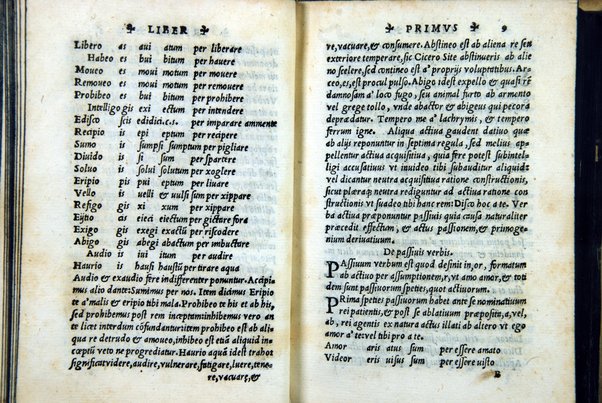 LIBER
Libero as aui atum per liberare
Habeo es bui itum per hauere
Moueo es moui motum per mouere
Remoueo es moui motum per remouere
Prohibeo es bui itum per prohibere
Intelligo gis exi ectum per intendere
Edisco scis edidici.c.s. per imparare ammente
Recipio is epi eptum per recipere
Sumo is sumpsi sumptum per pigliare
Diuido is si sum per spartere
Soluo is solui solutum per xoglere
Eripio pis pui eptum per liuare
Vello is uelli & uulsi sum per xippare
Refigo gis xi xum per xippare
Eijtio as eieci eiectum per gictare fora
Exigo gis exegi exactũ per riscodere
Abigo gis abegi abactum per imbuctare
Audio is iui itum per audire
Haurio is hausi haustũ per tirare aqua
Audio & exaudio fere indifferenter ponuntur. Accipi
mus alio dante. Sumimus per nos. Item dicimus Eripio
te a' malis & eripio tibi mala. Prohibeo te his et ab his,
sed prohibemus post rem inceptam: inhibemus vero an
te licet interdum cõfundantur: item prohibeo est ab aliqua
re detrudo & amoueo, inhibeo est etiã aliquid in
cœptũ veto ne progrediatur. Haurio aqui idest traho:
significat videre, audire, vulnerare, fatigare, luere, tene
re, vacuare, &
PRIMVS 9
re, vacuare, & consumere. Abstineo est ab aliena re seu
exteriore temperare, sic Cicero Site abstinueris ab alie
no scelere, sed contineo est a' proprijs voluptatibus. Ar
ceo, es, est procul pulso. Abigo idest expello & quasi rẽ
damnosam a' loco fugo, seu animal furto ab armento
vel grege tollo, vnde abactor & abigeus qui pecora
deprædatur. Tempero me a' lachrymis, & tempero
ferrum igne. Aliqua actiua gaudent datiuo quæ
ab alijs reponuntur in septimam regula, sed melius ap-
pellentur actiua acquisitiua, quia fere potest subintel-
ligi accusatiuus vt inuideo tibi subauditur aliquid:
vel dicantur neutra acquisitiua ratione constructionis,
sicut pleraq; neutra rediguntur ad actiua ratione con
structionis vt suadeo tibi hanc rem: Disco hoc a te. Ver
ba actiua præponuntur passiuis quia causa naturaliter
præcedit effectum, & actus passionem, & primoge-
nium deriuatiuum.
De passiuis verbis.
PAssiuum verbum est quod desinit in, or, formatum
ab actiuo per assumptionem, r, vt amo amor, & to-
tidem sunt passiuorum speties, quot actiuorum.
PRima speties passiuorum habet ante se nominatiuum
rei patientis, & post se ablatiuum præposito, a, vel,
ab, rei agentis ex natura actus illati ab altero vt ego
amor a' te: vel tibi pro a te.
Amor aris atus sum per essere amato
Videor eris uisus sum per essere uisto
B